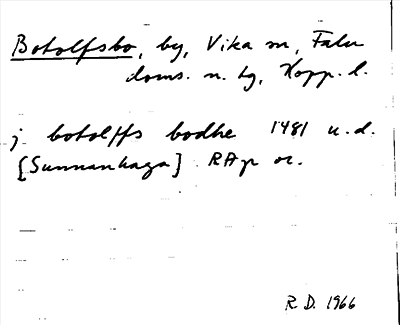 Botolfsbo, by, Vika sn, Falu
doms. n. tg, Kopp. l.
j botolffs bodhe 1481 u.d.
[Sunnanhaga] RAp or.
R.D. 1966